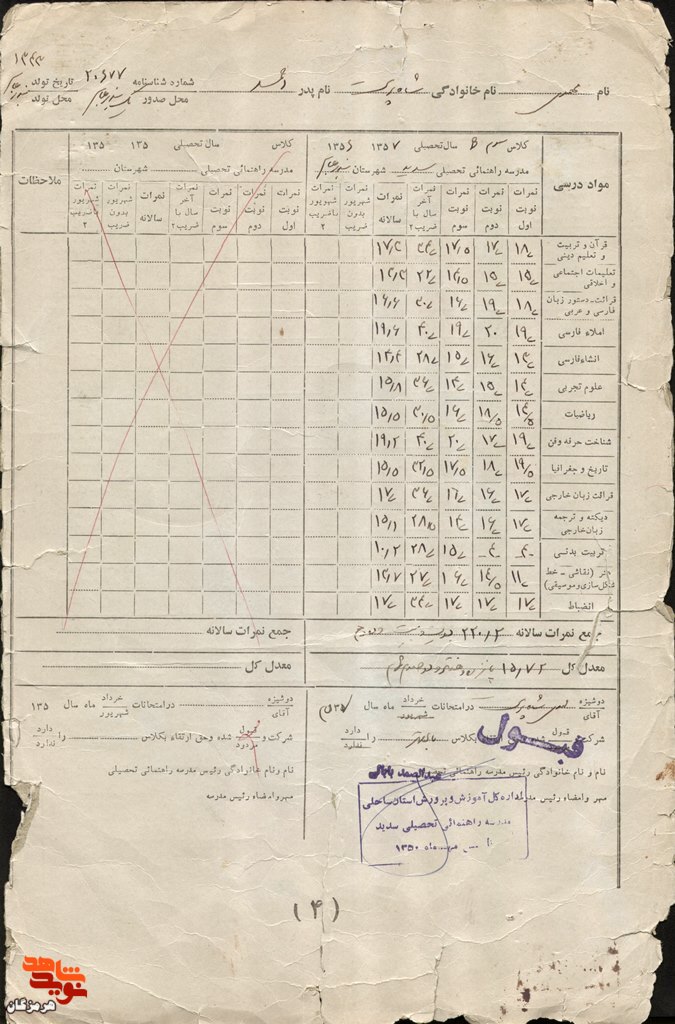 ۱۳۴۳
نام نام خانوادگی نام پدر شماره شناسنامه ۲۰۶۷۷ تاریخ تولد
محل صدور محل تولد
مواد درسی کلاس سوم سال تحصیلی ۱۳۵۷ ۱۳۵۶ کلاس سال تحصیلی ۱۳۵ ۱۳۵ ملاحظات
مدرسه راهنمائی تحصیلی سدید شهرستان مدرسه راهنمائی تحصیلی شهرستان
نمرات نوبت اول نمرات نوبت دوم نمرات نوبت سوم نمرات آخر سال با ضریب ۲ نمرات سالانه نمرات شهریور بدون ضریب نمرات شهریور باضریب ۲ نمرات نوبت اول نمرات نوبت دوم نمرات نوبت سوم نمرات آخر سال با ضریب ۲ نمرات سالانه نمرات شهریور بدون ضریب نمرات شهریور باضریب ۲
قرآن و تربیت و تعلیم دینی ۱۸ ۱۷ ۱۷/۵ ۳۴ ۱۷/۳
تعلیمات اجتماعی و اخلاقی ۱۵ ۱۵ ۲۲
قرائت-دستور زبان فارسی و عربی ۱۸ ۱۹ ۱۶ ۳۰ ۱۶/۶
املاء فارسی ۱۹ ۲۰ ۱۹ ۴۰ ۱۹/۶
انشاءفارسی ۱۳ ۱۶ ۱۵ ۲۸ ۱۴/۴
علوم تجربی ۱۴ ۱۵ ۱۴ ۳۶ ۱۵/۸
ریاضیات ۱۴/۵ ۱۸/۵ ۱۴ ۳۰/۵ ۱۵/۵
شناخت حرفه وفن ۱۹ ۱۷ ۲۰ ۴۰ ۱۹/۲
تاریخ و جغرافیا ۱۹/۵ ۱۸ ۱۷/۵ ۱۵/۵
قرائت زبان خارجی ۱۷ ۱۶ ۱۶ ۳۶ ۱۷
دیکته و ترجمه زبان خارجی ۱۷ ۱۶ ۱۴ ۲۸/۵ ۱۵/۱
تربیت بدنی ۱۵ ۲۸ ۱۰/۲
هنر (نقاشی - خط شکل سازی و موسیقی) ۱۱ ۱۴/۵ ۱۶ ۲۷
انضباط ۱۷ ۱۷ ۱۷ ۳۴ ۱۷
جمع نمرات سالانه ۲۲۰/۲ جمع نمرات سالانه
معدل کل ۱۵/۷۲ معدل کل
دوشیزه آقای در امتحانات خرداد شهریور ماه سال ۱۳۵۷ دوشیزه آقای در امتحانات خرداد شهریور ماه سال ۱۳۵
شرکت و قبول بکلاس را دارد ندارد شرکت و قبول مردود شده وحق ارتقاء بکلاس را دارد ندارد
قبول
نام و نام خانوادگی رئیس مدرسه راهنمائی نام ونام خانوادگی رئیس مدرسه راهنمائی تحصیلی
مهر وامضاء رئیس مهر وامضاء رئیس مدرسه
اداره کل آموزش و پرورش استان ساحلی
مدرسه راهنمائی تحصیلی سدید
ماه ۱۳۵۰
(۴)
نوید شاهد
هرمزگان